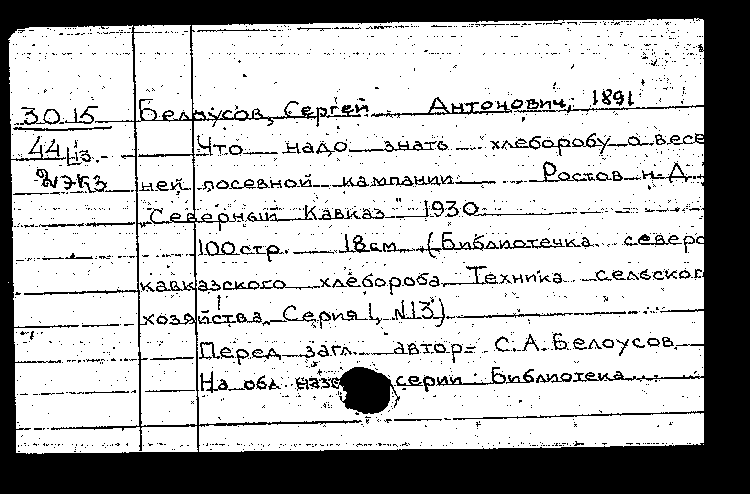 30.15 Белоусов, Сергей Антонович, 1891
44 Что надо знать хлеборобу о весе
2 экз ней посевной кампании. Ростов н-Д
"Северный Кавказ" 1930.
100стр. 18см. (Библиотечка северо
кавказского хлебороба. Техника сельског
хозяйства. Серия 1, N13)
Перед загл. автор= С.А.Белоусов
На обл. серии: Библиотека...